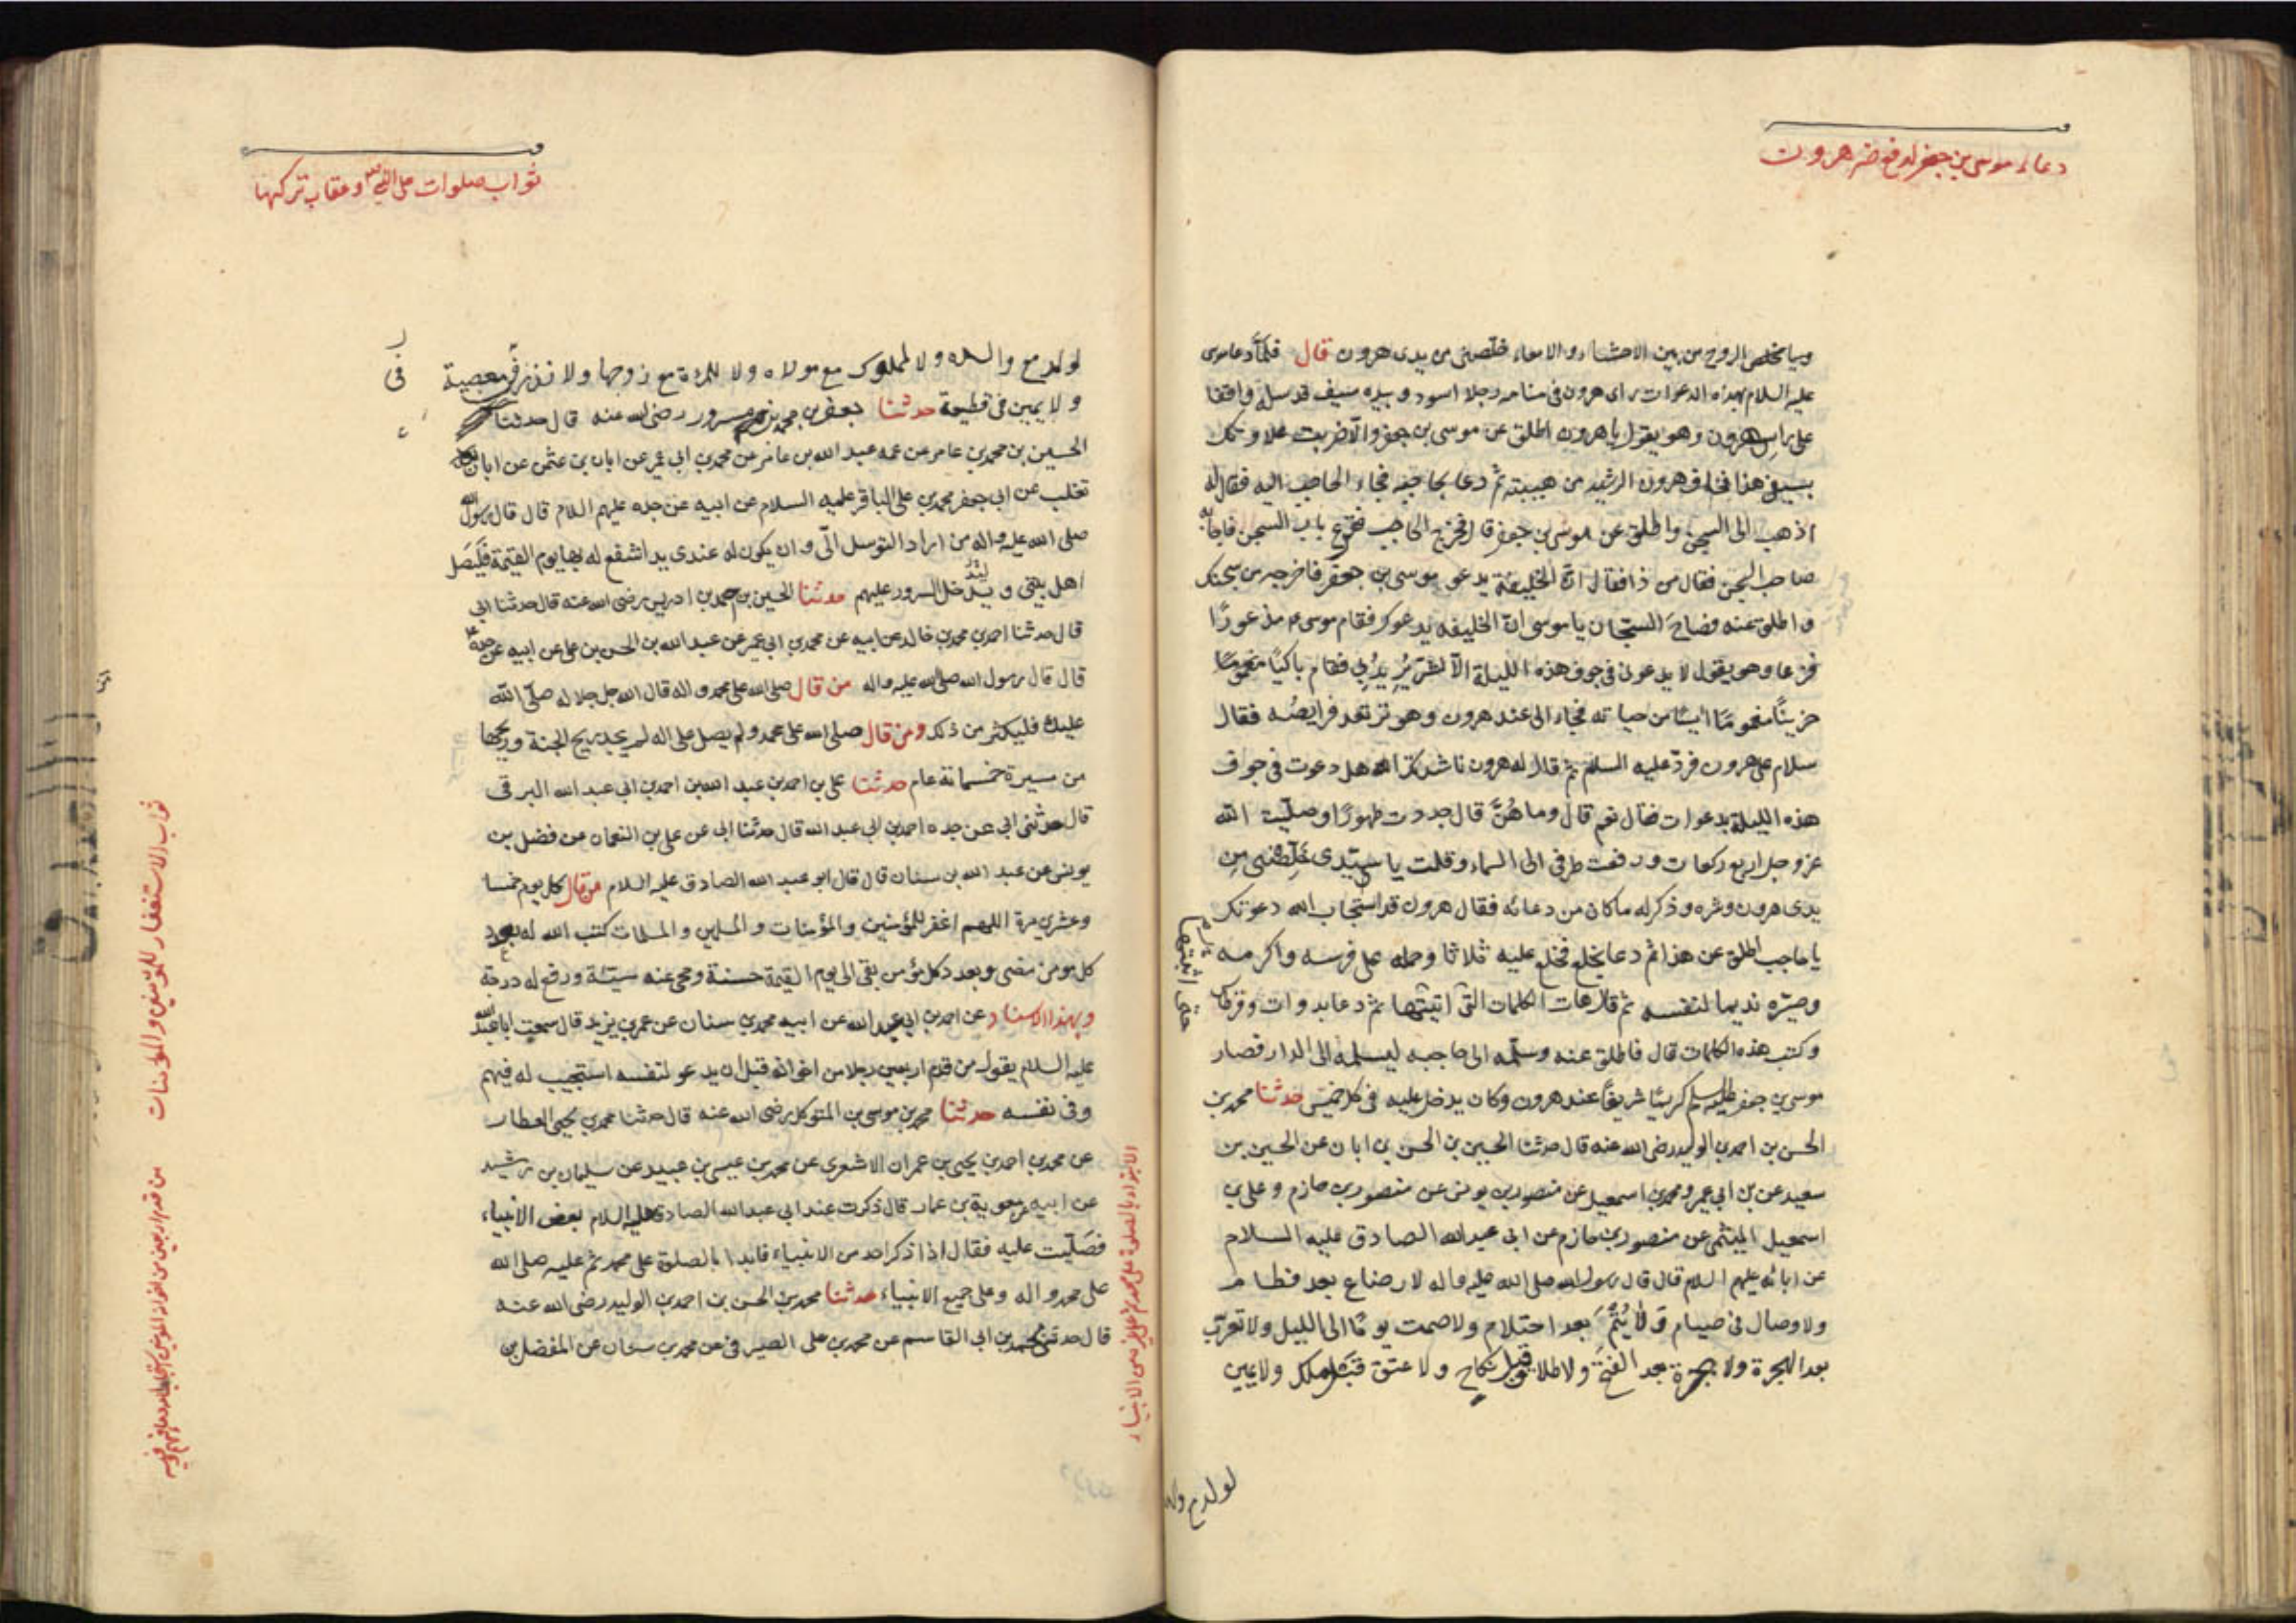 دعاء موسى بن جعفر لدفع ضر هرون
ويا مخلص الروح من بين الاحشاء والامعاء خلصنى من يدى هرون قال فلما دعا موسى
عليه السلام بهذه الدعوات راى هرون فى منامه رجلا اسود وبيده سيف قد سله واقفا
على راس هرون وهو يقول يا هرون اطلق عن موسى بن جعفر والا ضربت علاوتك
بسيفى هذا فخاف هرون الرشيد من هيبته ثم دعا بحاجبه فجاء الحاجب اليه فقال له
اذهب الى السجن واطلق عن موسى بن جعفر قال فخرج الحاجب فقرع باب السجن فاجابه
صاحب السجن فقال من ذا فقال ان الخليفة يدعو موسى بن جعفر فاخرجه من سجنك
واطلق عنه فصاح السجان يا موسى ان الخليفه يدعوك فقام موسى ع مذعورًا
فزعا وهو يقول لا يدعونى فى جوف هذه الليلة الا لشر يريد بى فقام باكيًا
حزينًا مغمومًا آيسًا من حياته فجاء الى عند هرون وهو ترتعد فرايصه فقال
سلام على هرون فرد عليه السلم ثم قال له هرون ناشدتك الله هل دعوت فى جوف
هذه الليلة بدعوات فقال نعم قال وما هُنَّ قال جددت طهورًا وصليت الله
عز وجل اربع ركعات ورفعت طرفى الى السماء وقلت يا سيدى خلصنى من
يدى هرون وشره وذكر له ما كان من دعائه فقال هرون قد استجاب الله دعوتك
يا حاجب اطلق عن هذا ثم دعا بخلع فخلع عليه ثلاثا وحمله على فرسه واكرمه
وصيّره نديما لنفسه ثم قال هات الكلمات التى اثبتها ثم دعا بدوات وقرطاس
وكتب هذه الكلمات قال فاطلق عنه وسلمه الى حاجبه ليسلمه الى الدار فصار
موسى بن جعفر عليه السلم كريمًا شريفًا عند هرون وكان يدخل عليه فى كل خميس حدثنا محمد بن
الحسن بن احمد بن الوليد رضى الله عنه قال حدثنا الحسين بن الحسن بن ابان عن الحسين بن
سعيد عن بن ابى عمير ومحمد بن اسمعيل عن منصور بن يونس عن منصور بن حازم وعلى بن
اسمعيل الميثمى عن منصور بن حازم عن ابى عبد الله الصادق عليه السلام
عن ابائه عليهم السلام قال قال رسول الله صلى الله عليه واله لا رضاع بعد فطام
ولا وصال فى صيام ولا يُتم بعد احتلام ولا صمت يومًا الى الليل ولا تعرّب
بعد الهجرة ولا هجرة بعد الفتح ولا طلاق قبل نكاح ولا عتق قبل ملك ولا يمين
لولد مع والده
ثواب صلوات على النبى ص وعقاب تركها
لولد مع والده ولا لمملوك مع مولاه ولا للمرءة مع زوجها ولا نذر فى معصية
ولا يمين فى قطيعة حدثنا جعفر بن محمد بن مسرور رضى الله عنه قال حدثنا
الحسين بن محمد بن عامر عن عمه عبد الله بن عامر عن محمد بن ابى عمير عن ابان بن عثمن عن ابان بن
تغلب عن ابى جعفر محمد بن على الباقر عليه السلام عن ابيه عن جده عليهم السلام قال قال رسول الله
صلى الله عليه واله من اراد التوسل الىّ وان يكون له عندى يد اشفع له بها يوم القيمة فليَصل
اهل بيتى ويدخل السرور عليهم حدثنا الحسين بن احمد بن ادريس رضى الله عنه قال حدثنا ابى
قال حدثنا احمد بن محمد بن خالد عن ابيه عن محمد بن ابى عمير عن عبد الله بن الحسن بن على عن ابيه عن جده
قال قال رسول الله صلى الله عليه واله من قال صلى الله على محمد واله قال الله جل جلاله صلّى الله
عليك فليكثر من ذلك ومن قال صلى الله على محمد ولم يصل على اله لم يجد ريح الجنة وريحها
من مسيرة خمسمائة عام حدثنا على بن احمد بن عبد الله بن احمد بن ابى عبد الله البرقى
قال حدثنى ابى عن جده احمد بن ابى عبد الله قال حدثنا ابى عن على بن النعمان عن فضل بن
يونس عن عبد الله بن سنان قال قال ابو عبد الله الصادق عليه السلام من قال كل يوم خمسا
وعشرين مرة اللهم اغفر للمؤمنين والمؤمنات والمسلمين والمسلمات كتب الله له بعدد
كل مومن مضى وبعدد كل مؤمن بقى الى يوم القيمة حسنة ومحى عنه سيئة ورفع له درجة
وبهذا الاسناد عن احمد بن ابى عبد الله عن ابيه محمد بن سنان عن عمر بن يزيد قال سمعت ابا عبد الله
عليه السلام يقول من قدم اربعين رجلا من اخوانه قبل ان يدعو لنفسه استجيب له فيهم
وفى نفسه حدثنا محمد بن موسى بن المتوكل رضى الله عنه قال حدثنا محمد بن يحيى العطار
عن محمد بن احمد بن يحيى بن عمران الاشعرى عن محمد بن عيسى بن عبيد عن سليمان بن رشيد
عن ابيه عن معوية بن عمار قال ذكرت عند ابى عبد الله الصادق عليه السلام بعض الانبياء
فصَلّيت عليه فقال اذا ذكر احد من الانبياء فابدا بالصلوة على محمد ثم عليه صلى الله
على محمد واله وعلى جميع الانبياء حدثنا محمد بن الحسن بن احمد بن الوليد رضى الله عنه
قال حدثنى محمد بن ابى القاسم عن محمد بن على الصيرفى عن محمد بن سنان عن المفضل بن
ثواب الاستغفار للمؤمنين والمؤمنات
من قدم اربعين من اخوانه المؤمنين
الابتداء بالصلوة على محمد ثم على من الانبياء